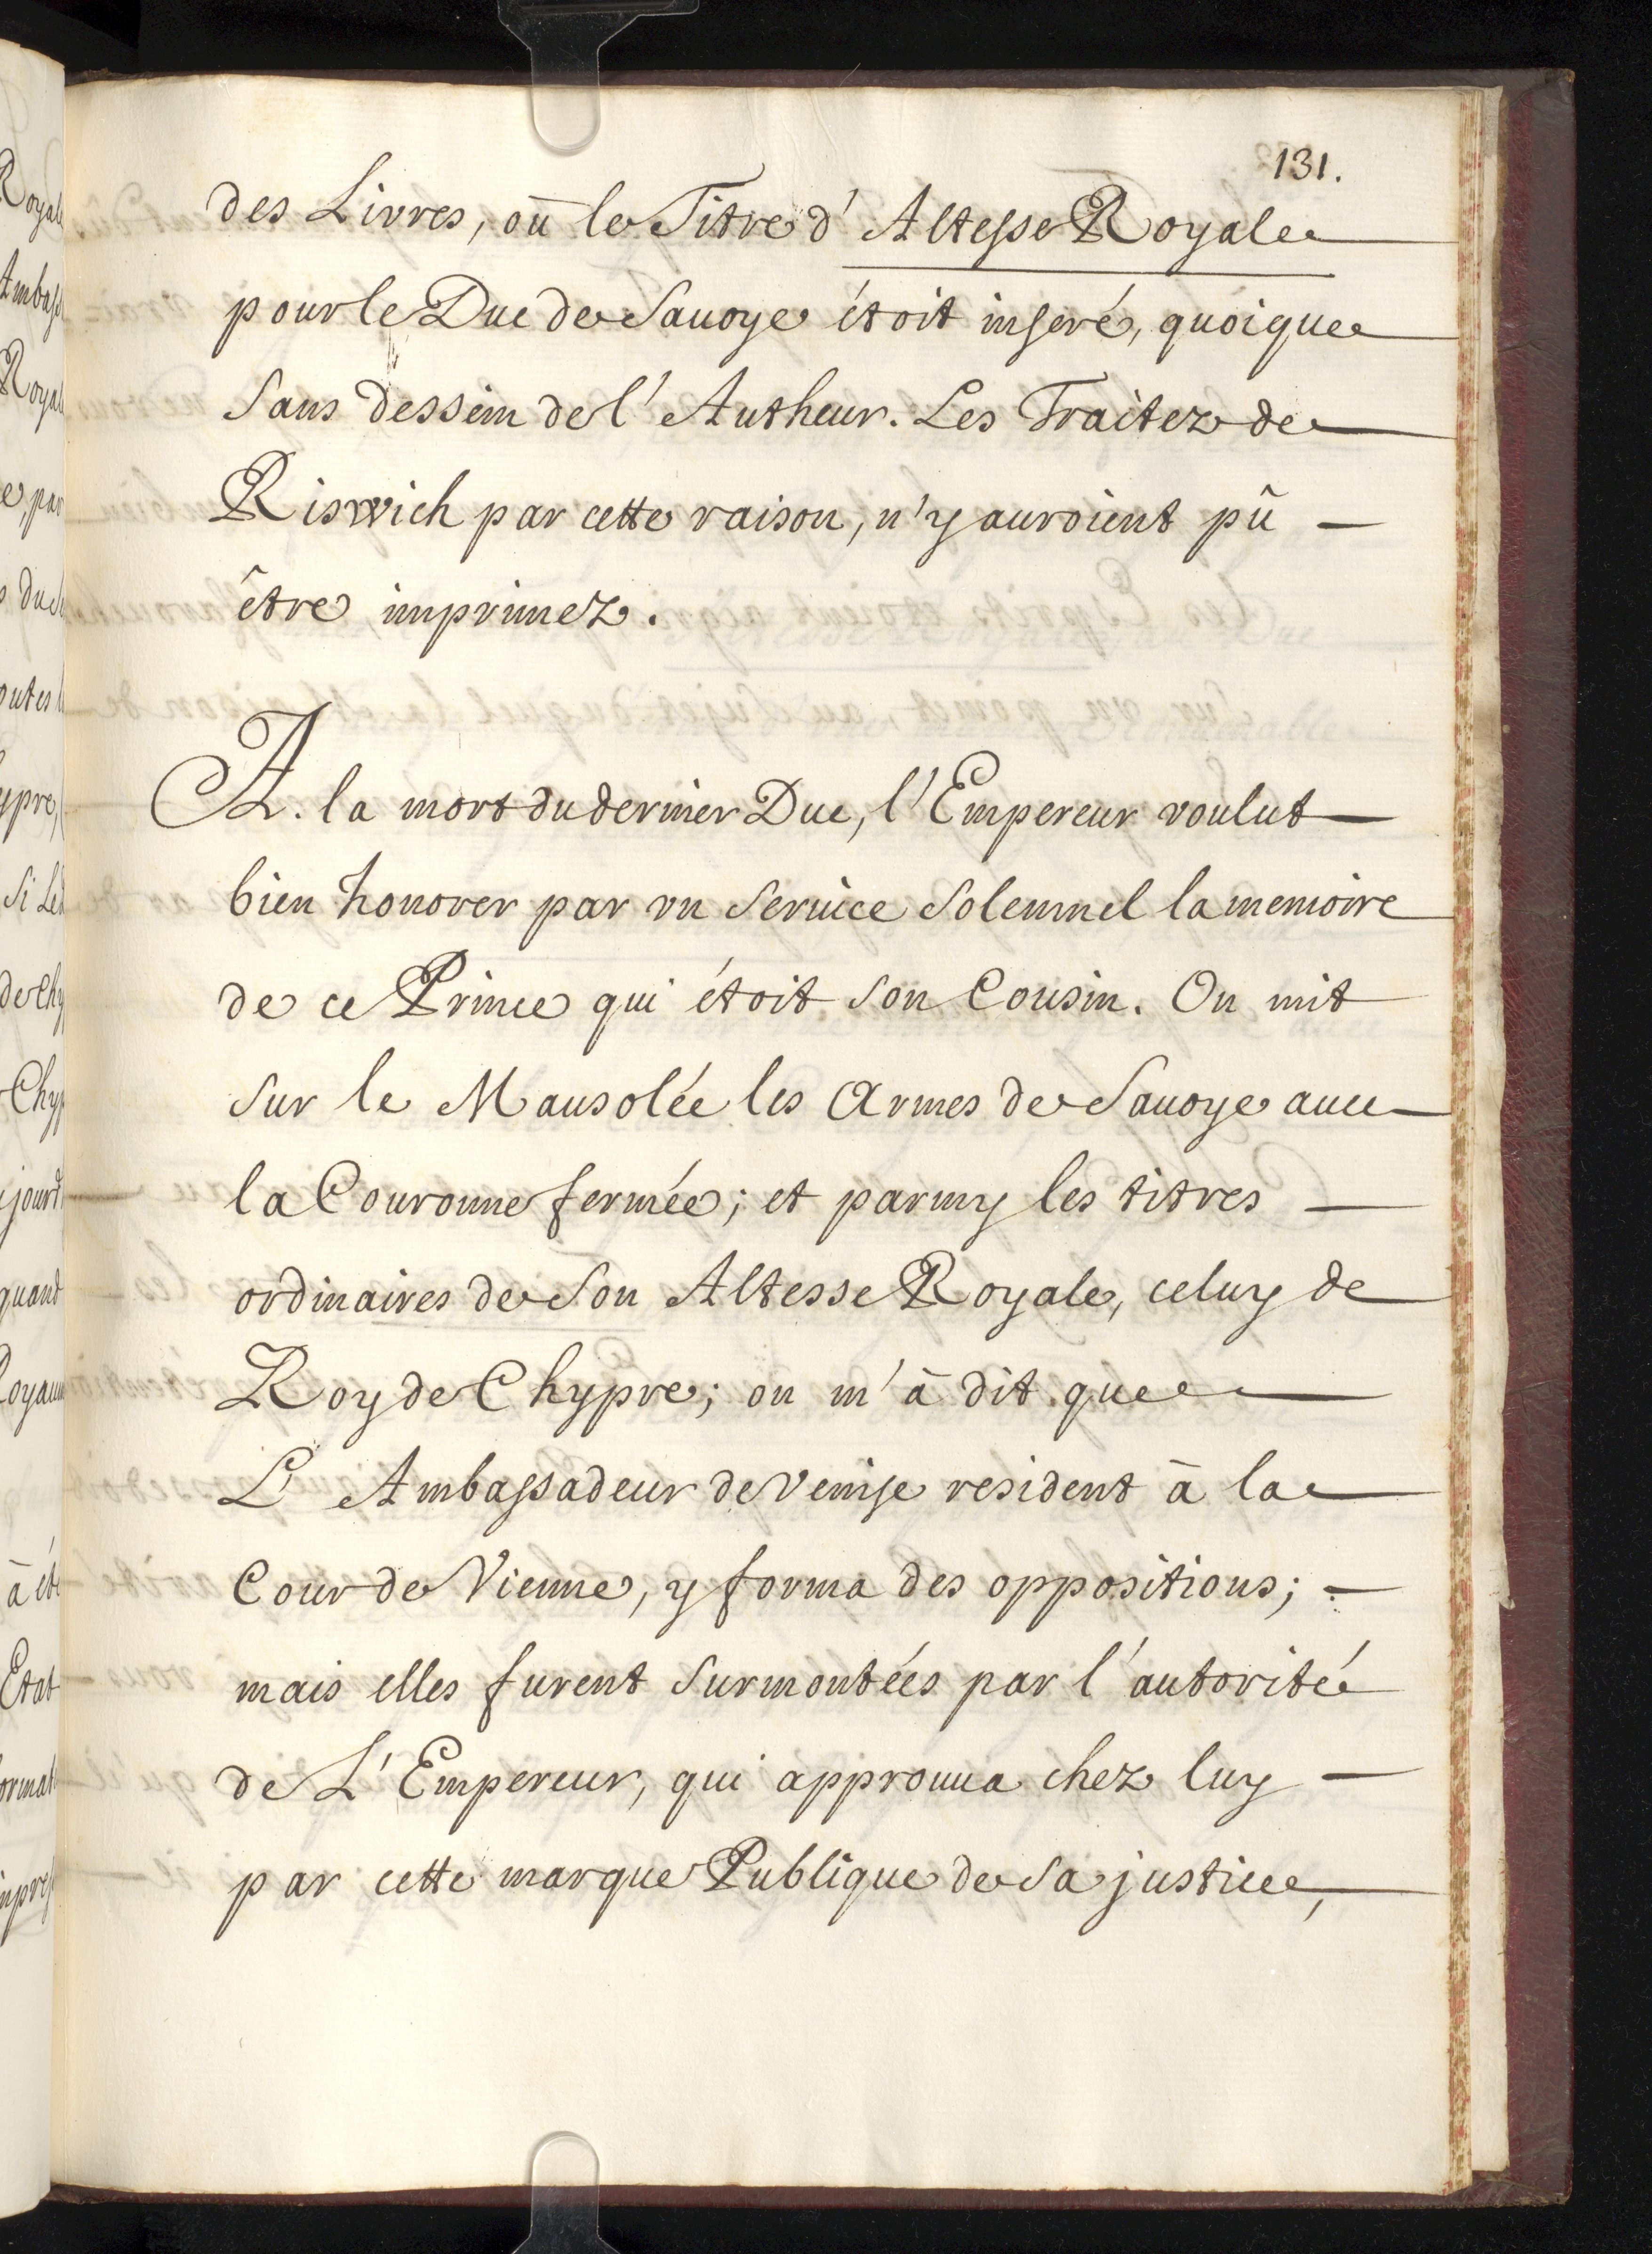 131.
des Livres, où le Titre d'Altesse Royale
pour le Duc de Sauoye étoit inseré, quoique
Sans dessein de l'Autheur. Les Traitez de
Riswich par cette raison, n'y auroient pû
être imprimez.
A. la mort du dernier Duc, l'Empereur voulut
bien honorer par vn Seruice Solemnel la memoire
de ce Prince qui étoit Son Cousin. On mit
Sur le Mausolée les Armes de Sauoye auec
la Couronne fermée; et parmy les titres
ordinaires de Son Altesse Royale, celuy de
Roy de Chypre; on m'à dit que
L'Ambassadeur de Venise resident à la
Cour de Vienne, y forma des oppositions;
mais elles furent Surmontées par l'autorité
de L'Empereur, qui approuua chez luy
par cette marque Publique de Sa justice,